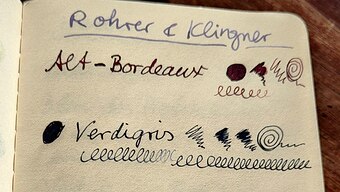 Rohrer & Klingner
Alt-Bordeaux
Verdigris